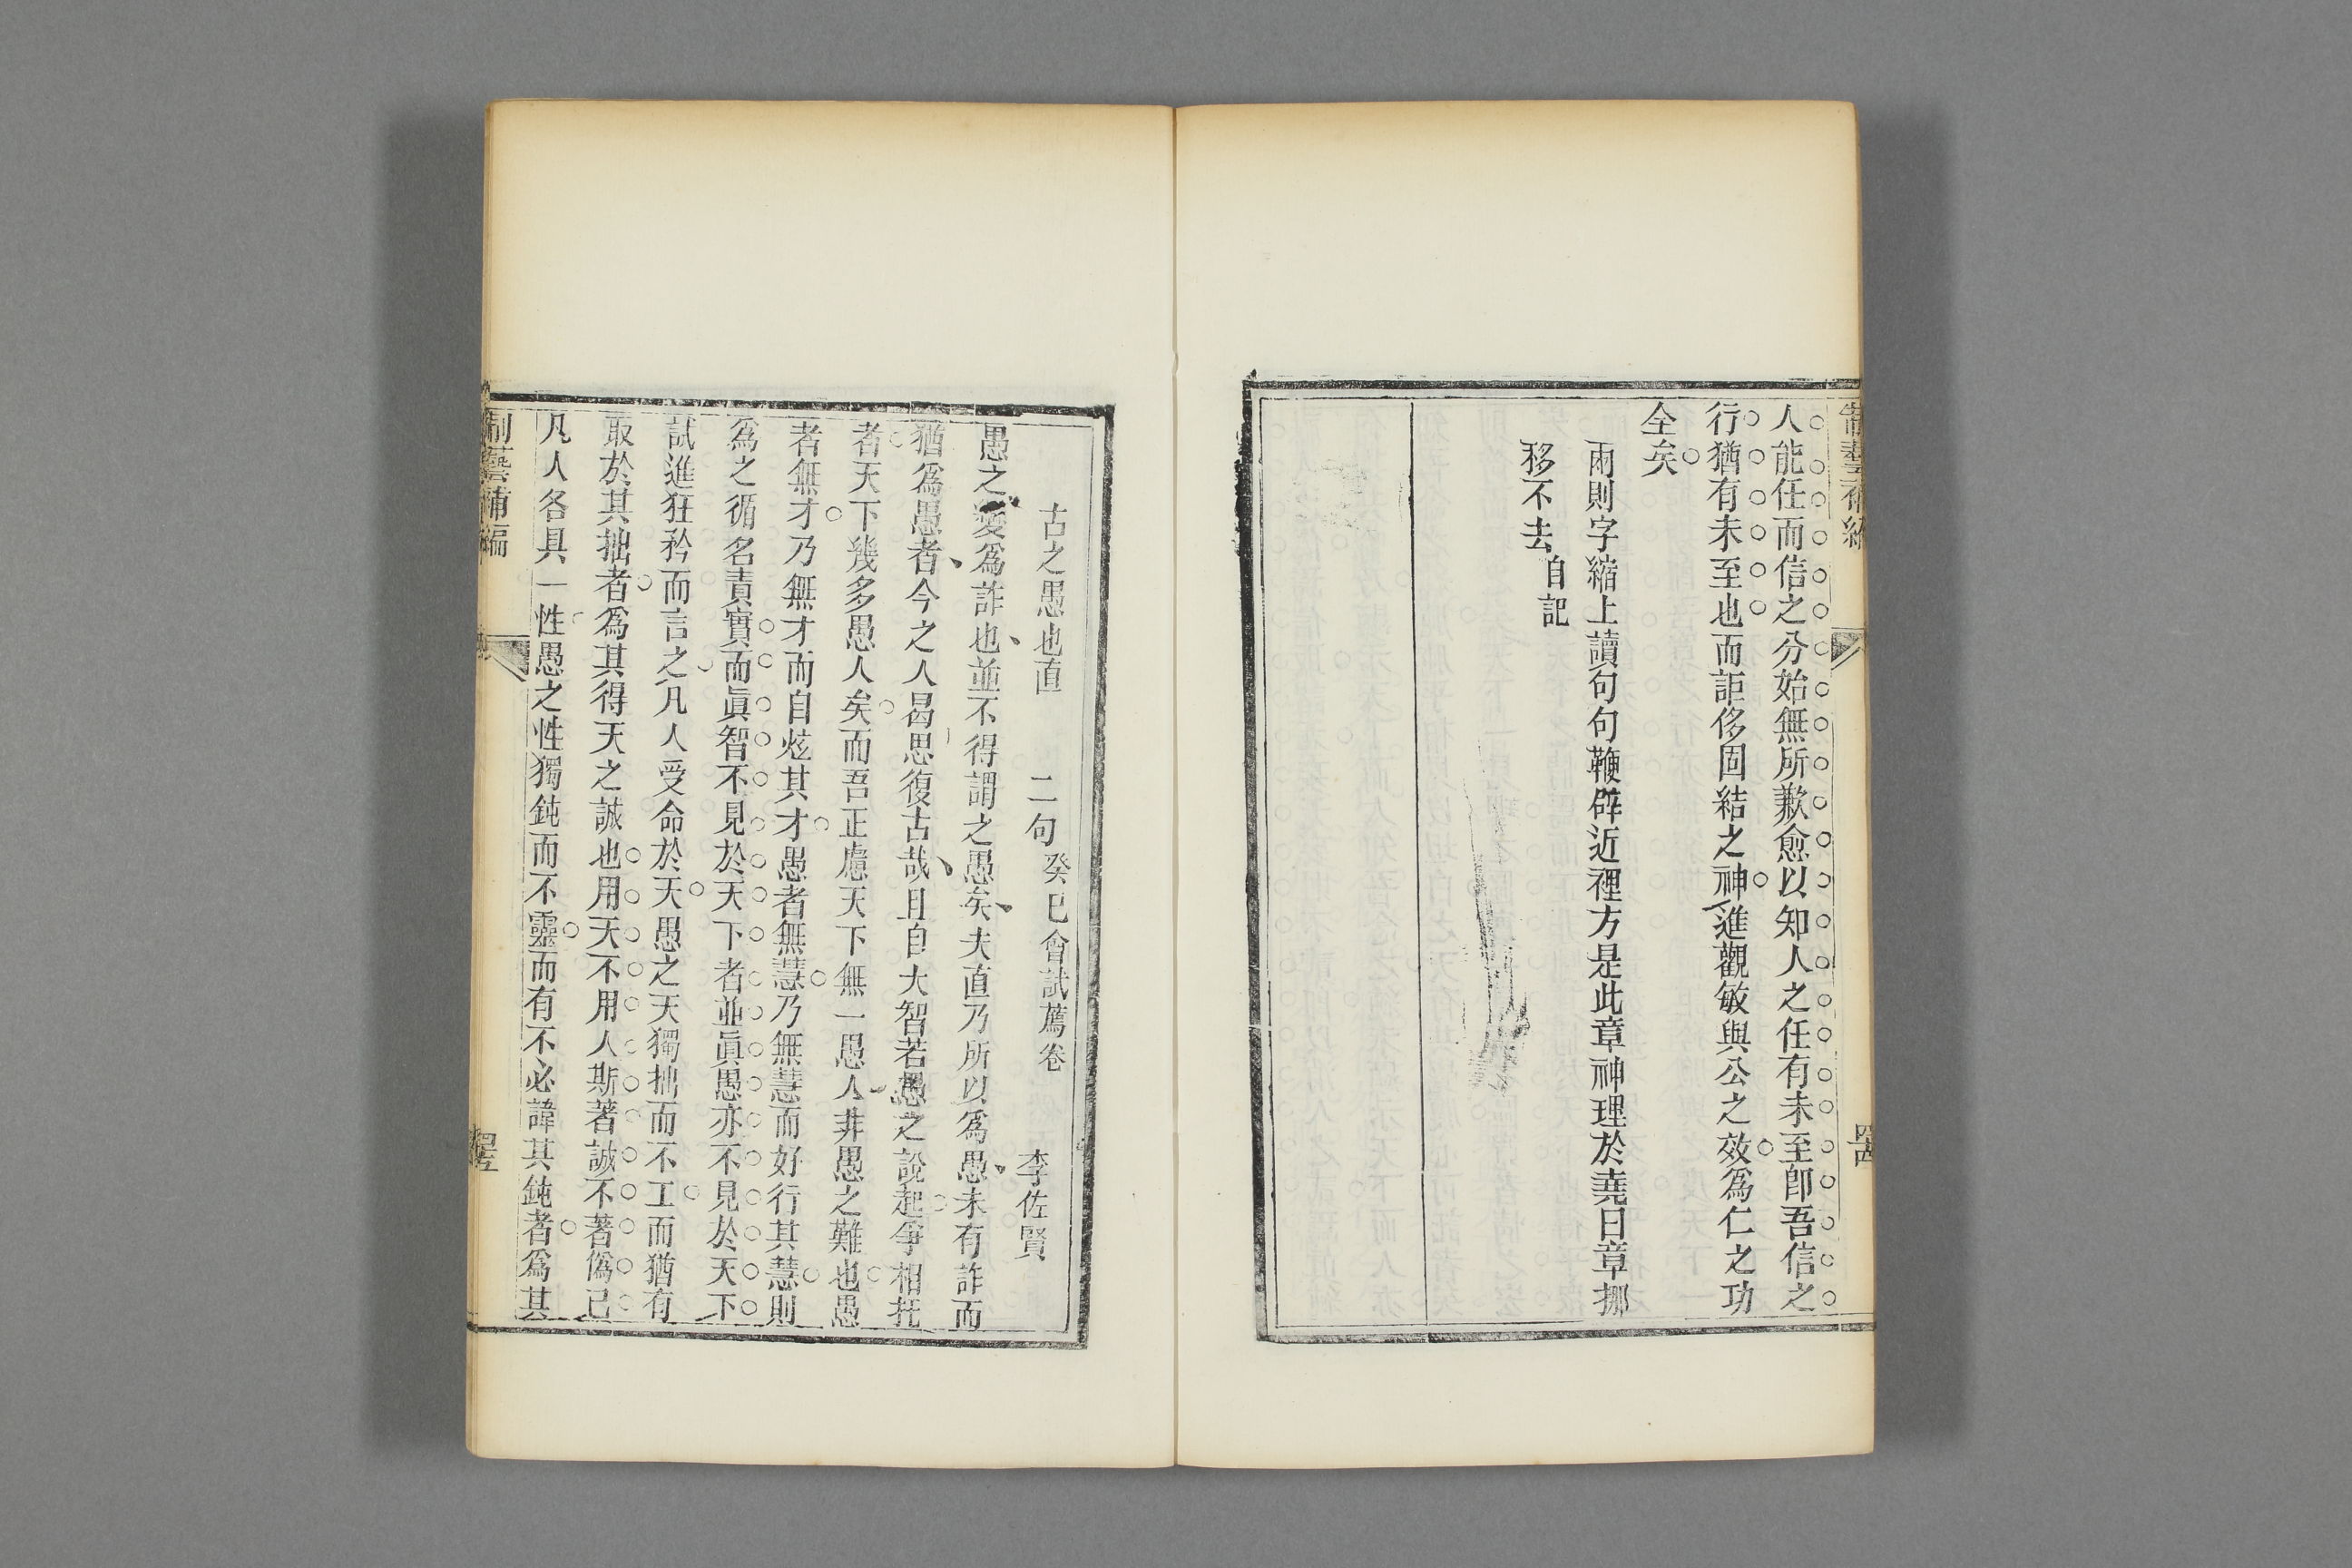 人能任而信之分始無所歉愈以知人之任有未至卽吾信之
行猶有未至也而詎侈固結之神進觀敏與公之效爲仁之功
全矣
兩則字縮上讀句句鞭辟近裡方是此章神理於堯曰章挪
移不去自記
古之愚也直 二句癸巳會試薦卷 李佐賢
愚之變爲詐也並不得謂之愚矣夫直乃所以爲愚未有詐而
猶爲愚者今之人曷思復古哉且自大智若愚之說起爭相托
者天下幾多愚人矣而吾正慮天下無一愚人非愚之難也愚
者無才乃無才而自炫其才愚者無慧乃無慧而好行其慧則
爲之循名責實而眞智不見於天下者並眞愚亦不見於天下
試進狂矜而言之凡人受命於天愚之天獨拙而不工而猶有
取於其拙者爲其得天之誠也用天不用人斯著誠不著僞已
凡人各具一性愚之性獨鈍而不靈而有不必諱其鈍者爲其
制藝補編